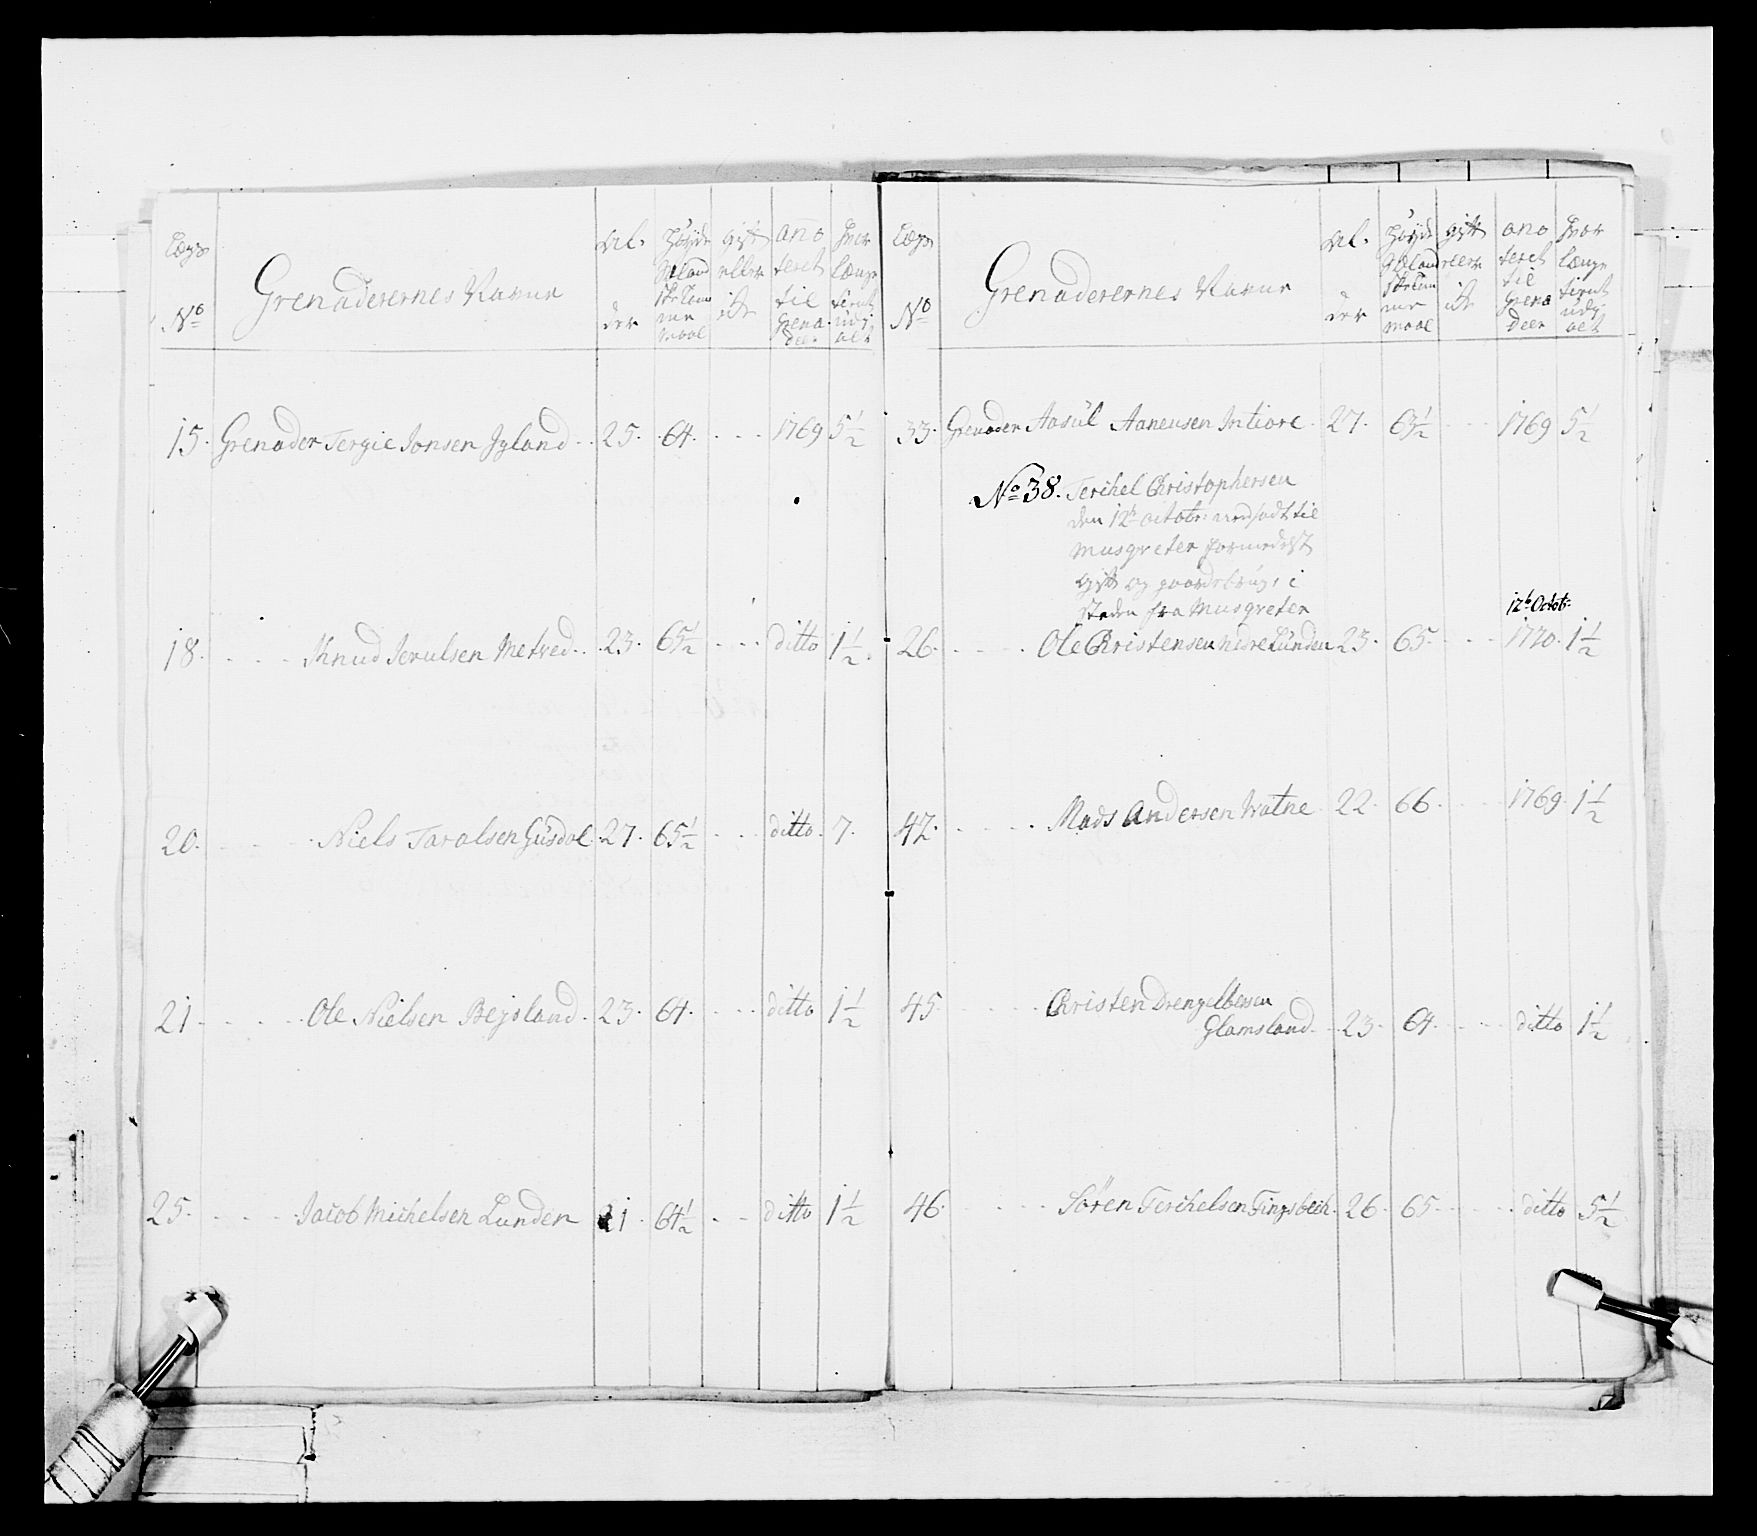 Lægs No Grenaderernes Navne Al- der Høyde Siælland ske Tom me maal gift eller ikke ano teret til Grena deer Hvor længe tient udj alt
15. Grenader Tergie Jonsen Igland 25. 64. 1769 5 1/2
18. Knud Jerulsen Metved 23. 65 1/2 ditto 1 1/2
20. Niels Taralsen Gusdal 27. 65 1/2 ditto 7.
21. Ole Nielsen Bejsland 23. 64. ditto 1 1/2
25. Jacob Michelsen Lunden 21. 64 1/2 ditto 1 1/2
Lægs No Grenaderernes Navne Al- der Høyde Siælland ske Tom me maal gift eller ikke ano teret til Grena deer Hvor længe tient udj alt
33. Grenader Aasül Aanensen Intiore 27. 63 1/2 1769 5 1/2
No 38. Terchel Christophersen
den 12te octobr: nedsadt til
Musqveter formedelst
gift og gaardsbrug, i
steden fra Musqveter
12te Octob:
26. Ole Christensen nedre Lunden 23. 65. 1770. 1 1/2
42. Mads Andersen Watne 22. 66. 1769. 1 1/2
45. Christen Drengelbersen
Glamsland 23. 64. ditto 1 1/2
46. Sören Terchelsen Tingsbech 26. 65. ditto 5 1/2